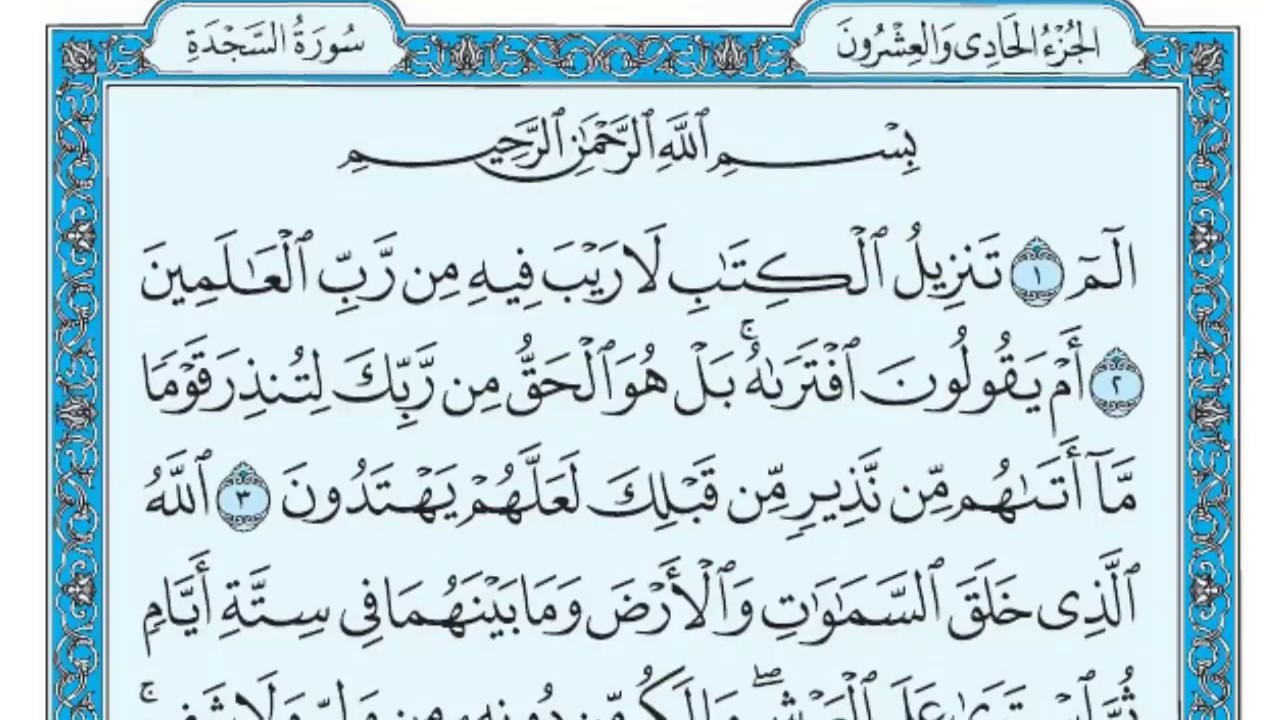 الجُزْءُ الحَادِى وَالعِشْرُونَ
سُورَةُ السَّجْدَةِ
بِسْمِ ٱللَّهِ ٱلرَّحْمَٰنِ ٱلرَّحِيمِ
الٓمٓ ١ تَنزِيلُ ٱلْكِتَٰبِ لَا رَيْبَ فِيهِ مِن رَّبِّ ٱلْعَٰلَمِينَ
٢ أَمْ يَقُولُونَ ٱفْتَرَىٰهُ ۚ بَلْ هُوَ ٱلْحَقُّ مِن رَّبِّكَ لِتُنذِرَ قَوْمًا
مَّآ أَتَىٰهُم مِّن نَّذِيرٍ مِّن قَبْلِكَ لَعَلَّهُمْ يَهْتَدُونَ ٣ ٱللَّهُ
ٱلَّذِى خَلَقَ ٱلسَّمَٰوَٰتِ وَٱلْأَرْضَ وَمَا بَيْنَهُمَا فِى سِتَّةِ أَيَّامٍ
ثُمَّ ٱسْتَوَىٰ عَلَى ٱلْعَرْشِ ۖ مَا لَكُم مِّن دُونِهِۦ مِن وَلِىٍّ وَلَا شَفِيعٍ ۚ